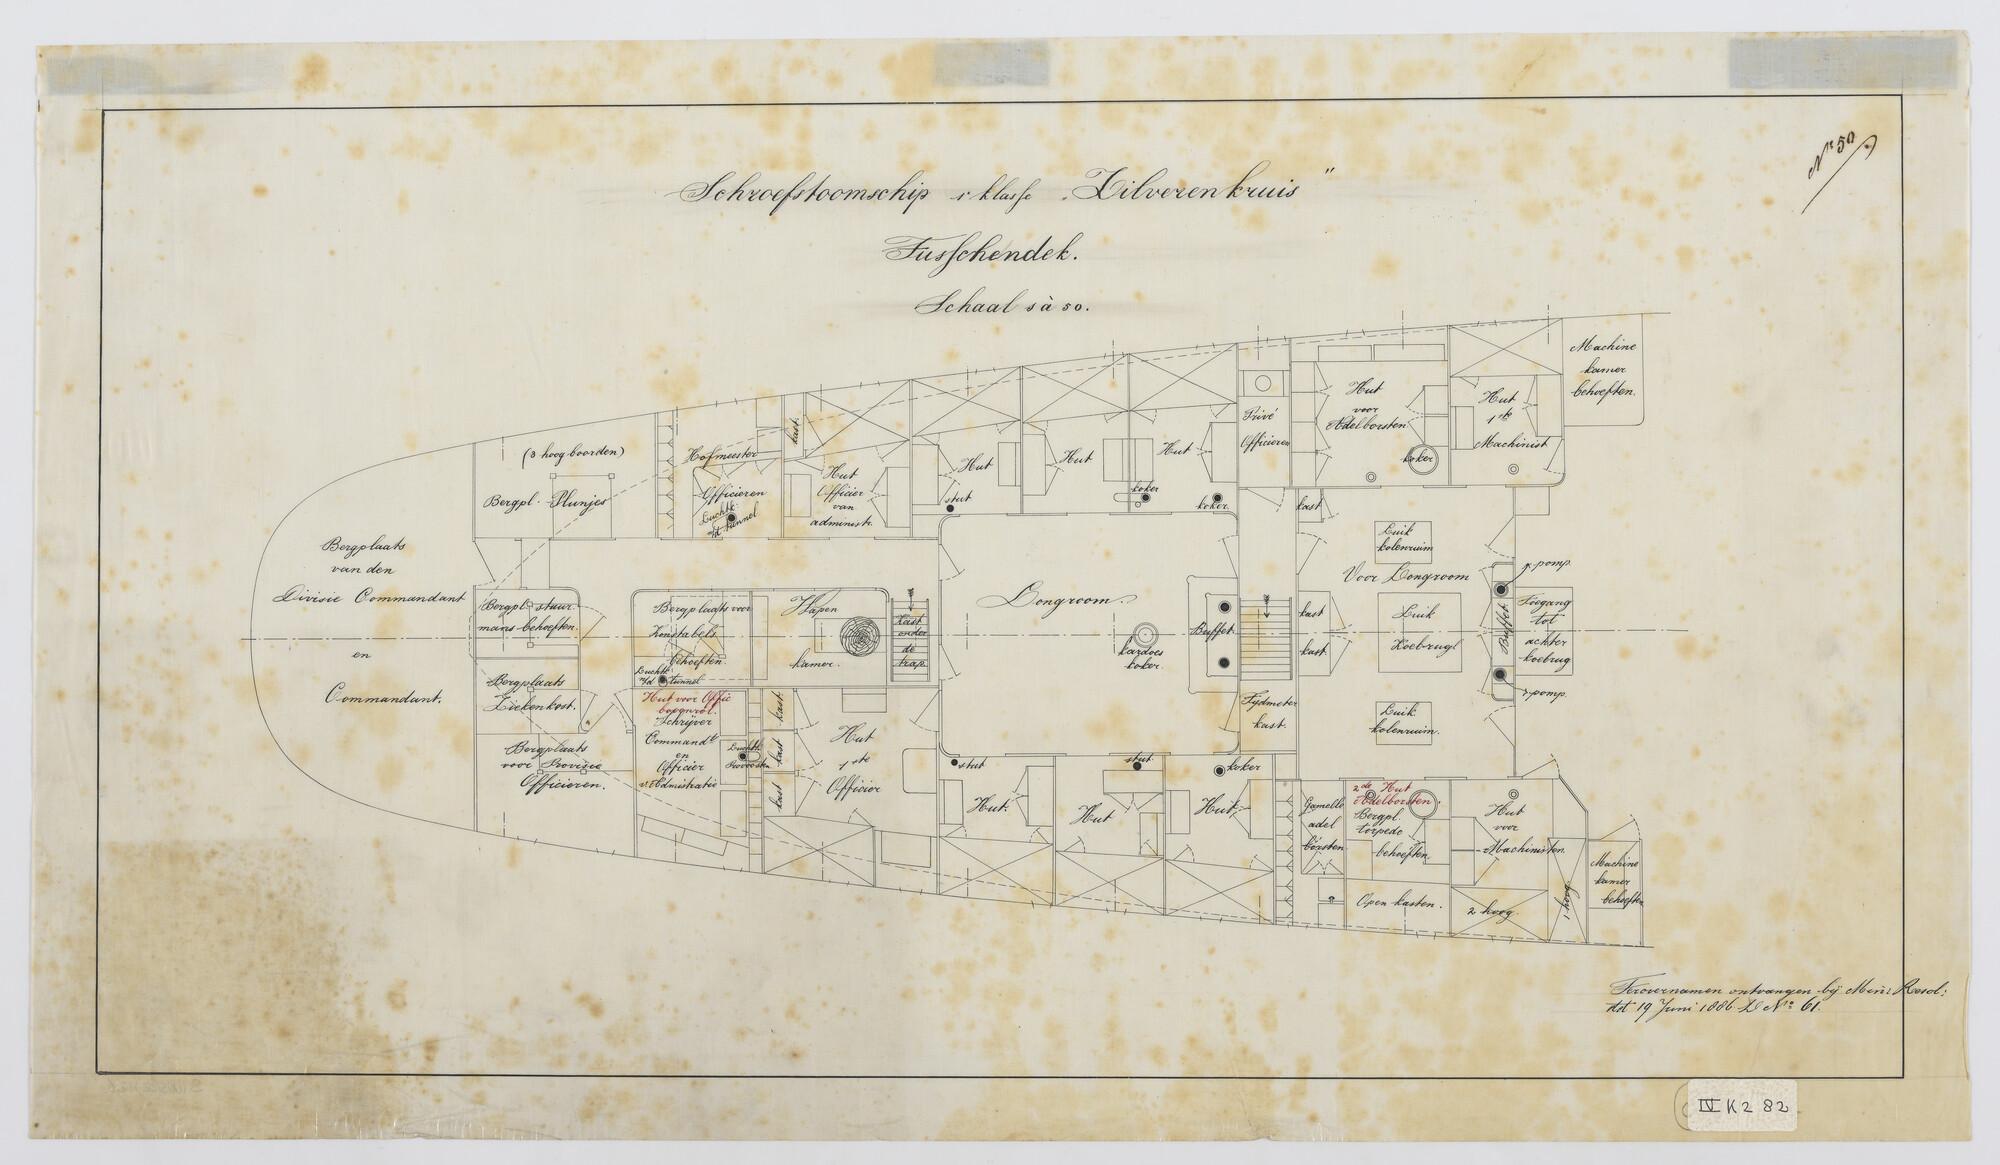 Nº 50
Schroefstoomschip 1e klasse „Zilveren kruis"
Tusschendek.
Schaal 1 à 50.
Machine
kamer
behoeften.
Hut
voor
Adelborsten
koker
Hut
1ste
Machinist
Privé
Officieren
(3 hoog boorden)
Bergpl. Plunjes
Hofmeester
Officieren
Luchtk.
v/d tunnel
kast
Hut
Officier
van
administr.
Hut
stut
Hut
Hut
koker
koker
kast
Luik
kolenruim
Voor Longroom
p. pomp.
Bergplaats
van den
Divisie Commandant
en
Commandant.
Bergpl. stuur
mans-behoeften.
Bergplaats voor
Konstabels
behoeften.
Luchtk.
v/d tunnel
Wapen
kamer.
Kast
onder
de
trap
Longroom.
kardoes
koker.
Buffet.
kast
kast
Luik
Koebrugl
Buffet
Toegang
tot
achter
koebrug
pomp.
Bergplaats
Ziekenkost.
Bergplaats
voor Provisie
Officieren.
Hut voor Offic
Schrijver
Commandt
en
Officier
v. Administratie
Luchtk.
Provoosten
kast
kast
kast
Hut
1ste
Officier
Tijdmeter
kast.
Luik
kolenruim.
stut
stut
koker
Hut.
Hut
Hut
Gamelle
adel
borsten
2de Hut
Adelborsten.
Bergpl.
torpedo
behoeften.
Open kasten.
Hut
voor
Machinisten.
2 hoog.
1 hoog.
Machine
kamer
behoeften
ontvangen bij Mini: Resol:
dot 19 Juni 1886 Nº 61.
IV K2 82